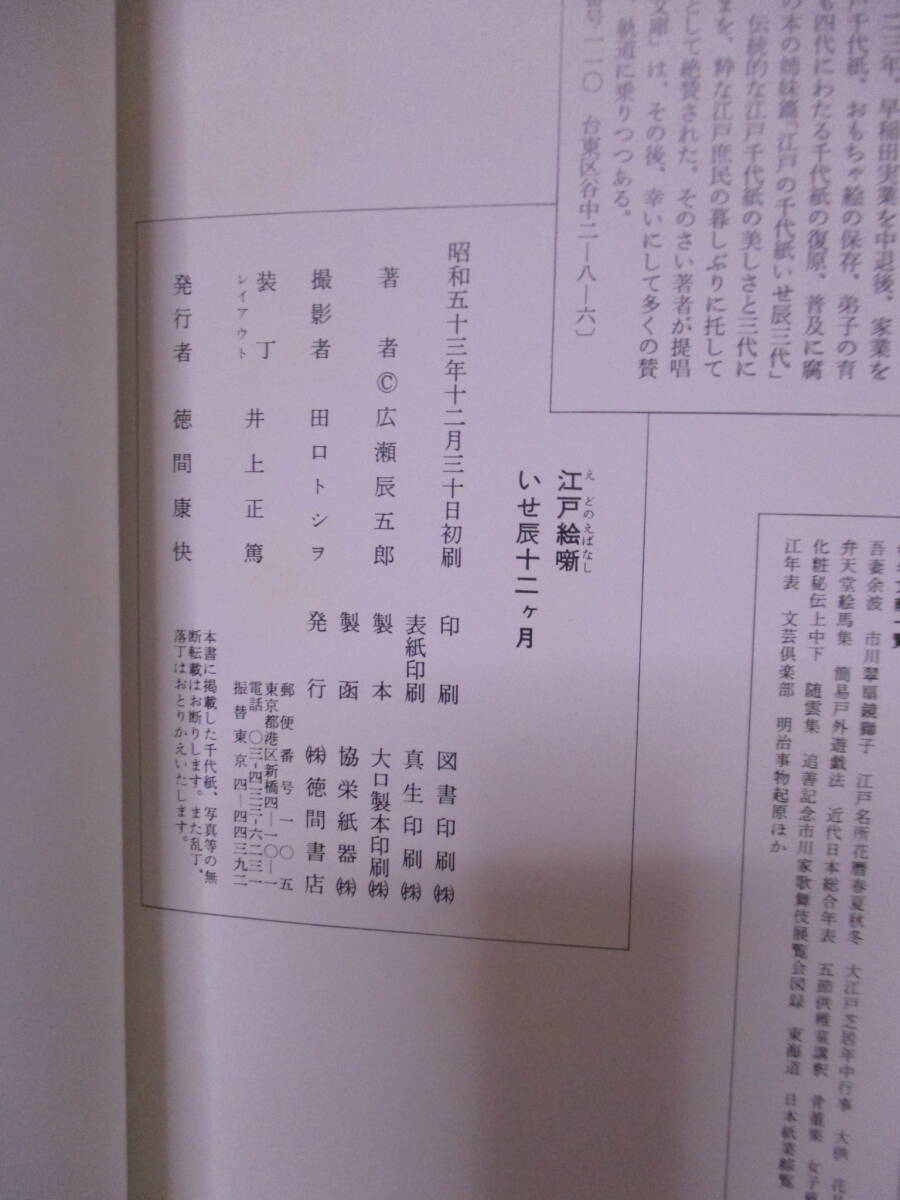 二三年、早稲田実業を中退後、家業を
戸千代紙、おもちゃ絵の保存、弟子の育
も四代にわたる千代紙の復原、普及に腐
の本の姉妹篇『江戸の千代紙いせ辰三代』
伝統的な江戸千代紙の美しさと三代に
まを、粋な江戸庶民の暮しぶりに托して
として絶賛された。そのさい著者が提唱
文庫」は、その後、幸いにして多くの賛
軌道に乗りつつある。
番号一一〇 台東区谷中二—八—六〕
江戸絵噺
えどのえばなし
いせ辰十二ヶ月
昭和五十三年十二月三十日初刷
著者©広瀬辰五郎
撮影者 田口トシヲ
装丁 井上正篤
レイアウト
発行者 徳間康快
印刷 図書印刷㈱
表紙印刷 真生印刷㈱
製本 大口製本印刷㈱
製函 協栄紙器㈱
発行 ㈱徳間書店
郵便番号一〇五
東京都港区新橋四—一〇—一
電話 〇三-四三三-六二三一
振替東京四—四四三九二
本書に掲載した千代紙、写真等の無
断転載はお断りします。また乱丁、
落丁はおとりかえいたします。
吾妻余波 市川翠扇鏡獅子 江戸名所花暦春夏秋冬 大江戸芝居年中行事 大供 花
弁天堂絵馬集 簡易戸外遊戯法 近代日本総合年表 五節供稚童講釈 骨董集 女子
化粧秘伝上中下 随雲集 追善記念市川家歌舞伎展覧会図録 東海道 日本紙業綜覧
江年表 文芸倶楽部 明治事物起原ほか